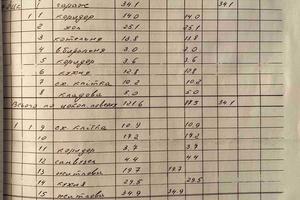 1 гараж 34.1 34.1
1 1 коридор 14.0 14.0
2 хол 25.1 25.1
3 котельня 13.8
4 вбиральня 3.0 3.0
5 коридор 3.6 3.6
6 кухня 12.8 12.8
7 сх. клітка 10.2 10.2
8 кладова 5.0 5.0
Всього по 121.6 34.1
1 1 9 сх. клітка 10.9 10.9
10 19.2 19.2
11 коридор 3.7 3.7
12 санвузел 4.4 4.4
13 житлова 19.7 19.7
14 кухня 29.5 29.5
15 житлова 34.9 34.9